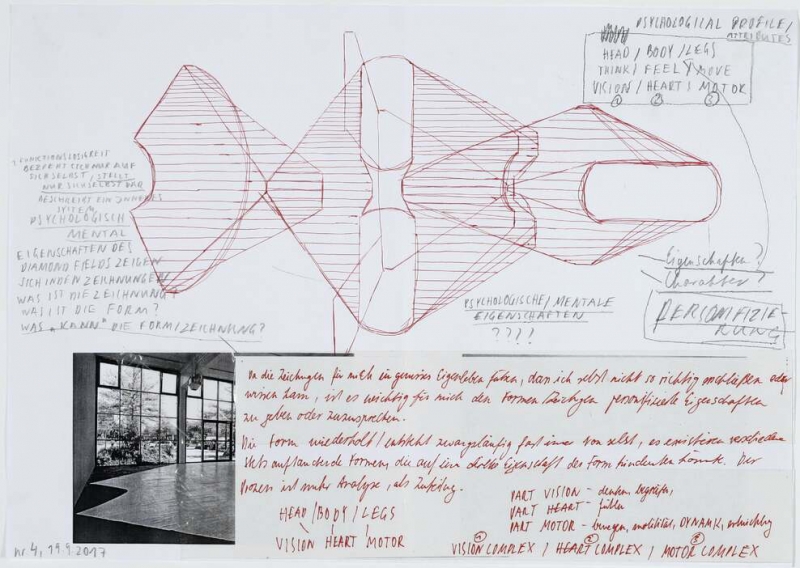 PSYCHOLOGICAL PROFILE /
ATTRIBUTES
HEAD / BODY / LEGS
THINK / FEEL / MOVE
VISION / HEART / MOTOR
1 2 3
FUNKTIONSLOSIGKEIT
BEZIEHT SICH NUR AUF
SICH SELBST / STELLT
NUR SICH SELBST DAR
BESCHREIBT EIN INNERES
SYSTEM
PSYCHOLOGISCH
MENTAL
EIGENSCHAFTEN DES
DIAMOND FIELDS ZEIGEN
SICH IN DEN ZEICHNUNGEN
WAS IST DIE ZEICHNUNG?
WAS IST DIE FORM?
WAS "KANN" DIE FORM/ZEICHNUNG?
PSYCHOLOGISCHE / MENTALE
EIGENSCHAFTEN
????
Eigenschaften?
Charakter?
PERSONIFIZIE-
RUNG
die Zeichnungen für mich ein gewisses Eigenleben führen, das ich selbst nicht so richtig erschließen oder
wissen kann, ist es wichtig für mich den Formen/Zeichnungen personifizierte Eigenschaften
zu geben oder zuzusprechen.
Die Form wiederholt / entsteht zwangsläufig fast immer von selbst, es existieren verschiedene
stets auftauchende Formen, die auf eine Eigenschaft der Form hindeuten könnte. Der
Prozess ist mehr Analyse, als Zuteilung.
HEAD / BODY / LEGS
VISION HEART / MOTOR
PART VISION - denken, begreifen,
PART HEART - fühlen
PART MOTOR - bewegen, mobilität, DYNAMIK,
1 2 3
VISION COMPLEX / HEART COMPLEX / MOTOR COMPLEX
nr 4, 19.9.2017